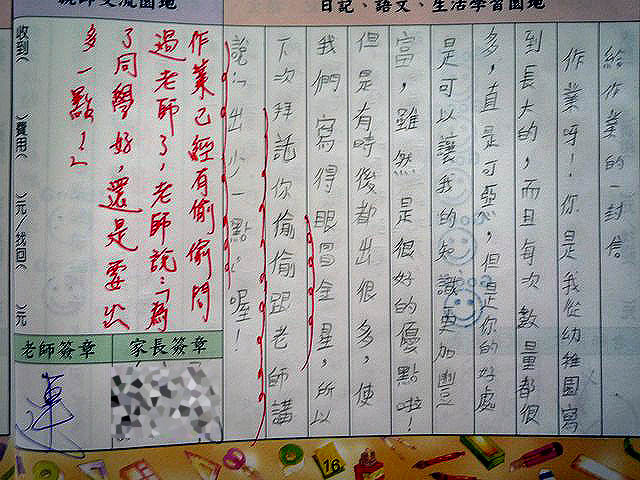 日記、語文、生活學習園地
給作業的一封信
作業呀!你是我從幼稚園寫
到長大的,而且每次數量都很
多,真是可惡,但是你的好處
是可以讓我的知識更加豐
富,雖然是很好的優點啦!
但是有時後都出很多,使
我們寫得眼冒金星,所以
下次拜託你偷偷跟老師講
說:出少一點心喔!
作業已經有偷偷問
過老師了,老師說:「為
了同學好,還是要出
多一點!」
收到( )費用( )元/找回( )元
家長簽章
老師簽章
16